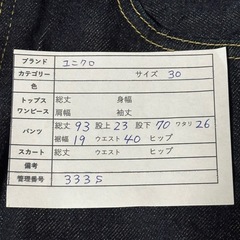 ブランド ユニクロ
カテゴリー サイズ 30
色
トップス 総丈 身幅
ワンピース 肩幅 袖丈
パンツ 総丈 93 股上 23 股下 70 ワタリ 26
裾幅 19 ウエスト 40 ヒップ
スカート 総丈 ウエスト ヒップ
備考
管理番号 333S